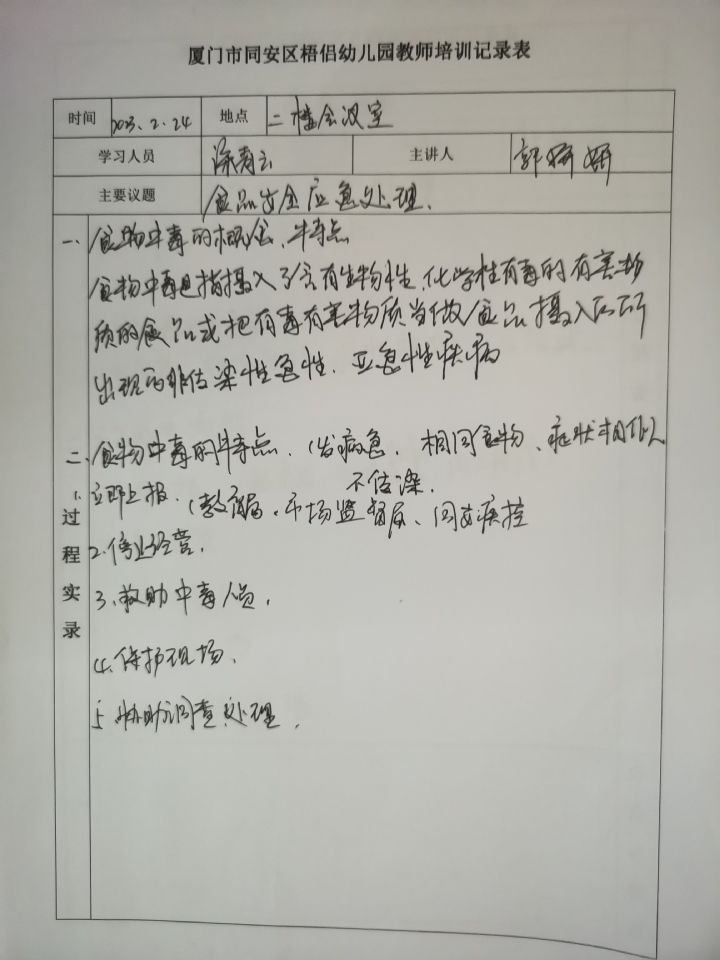 厦门市同安区梧侣幼儿园教师培训记录表
时间 2023.2.24 地点 二楼会议室
学习人员 涂寿云 主讲人 郭妍妍
主要议题 食品安全应急处理.
一、食物中毒的概念、特点
食物中毒是指摄入了含有生物性、化学性有毒的有害物
质的食品或把有毒有害物质当做食品摄入后所
出现的非传染性急性、亚急性疾病
二、食物中毒的特点.(发病急.相同食物、症状相似
不传染.
1.立即上报.(教育局.市场监督局、同安疾控
2.停业经营.
3、救助中毒人员.
4.保护现场.
5 协助调查处理.
过程实录